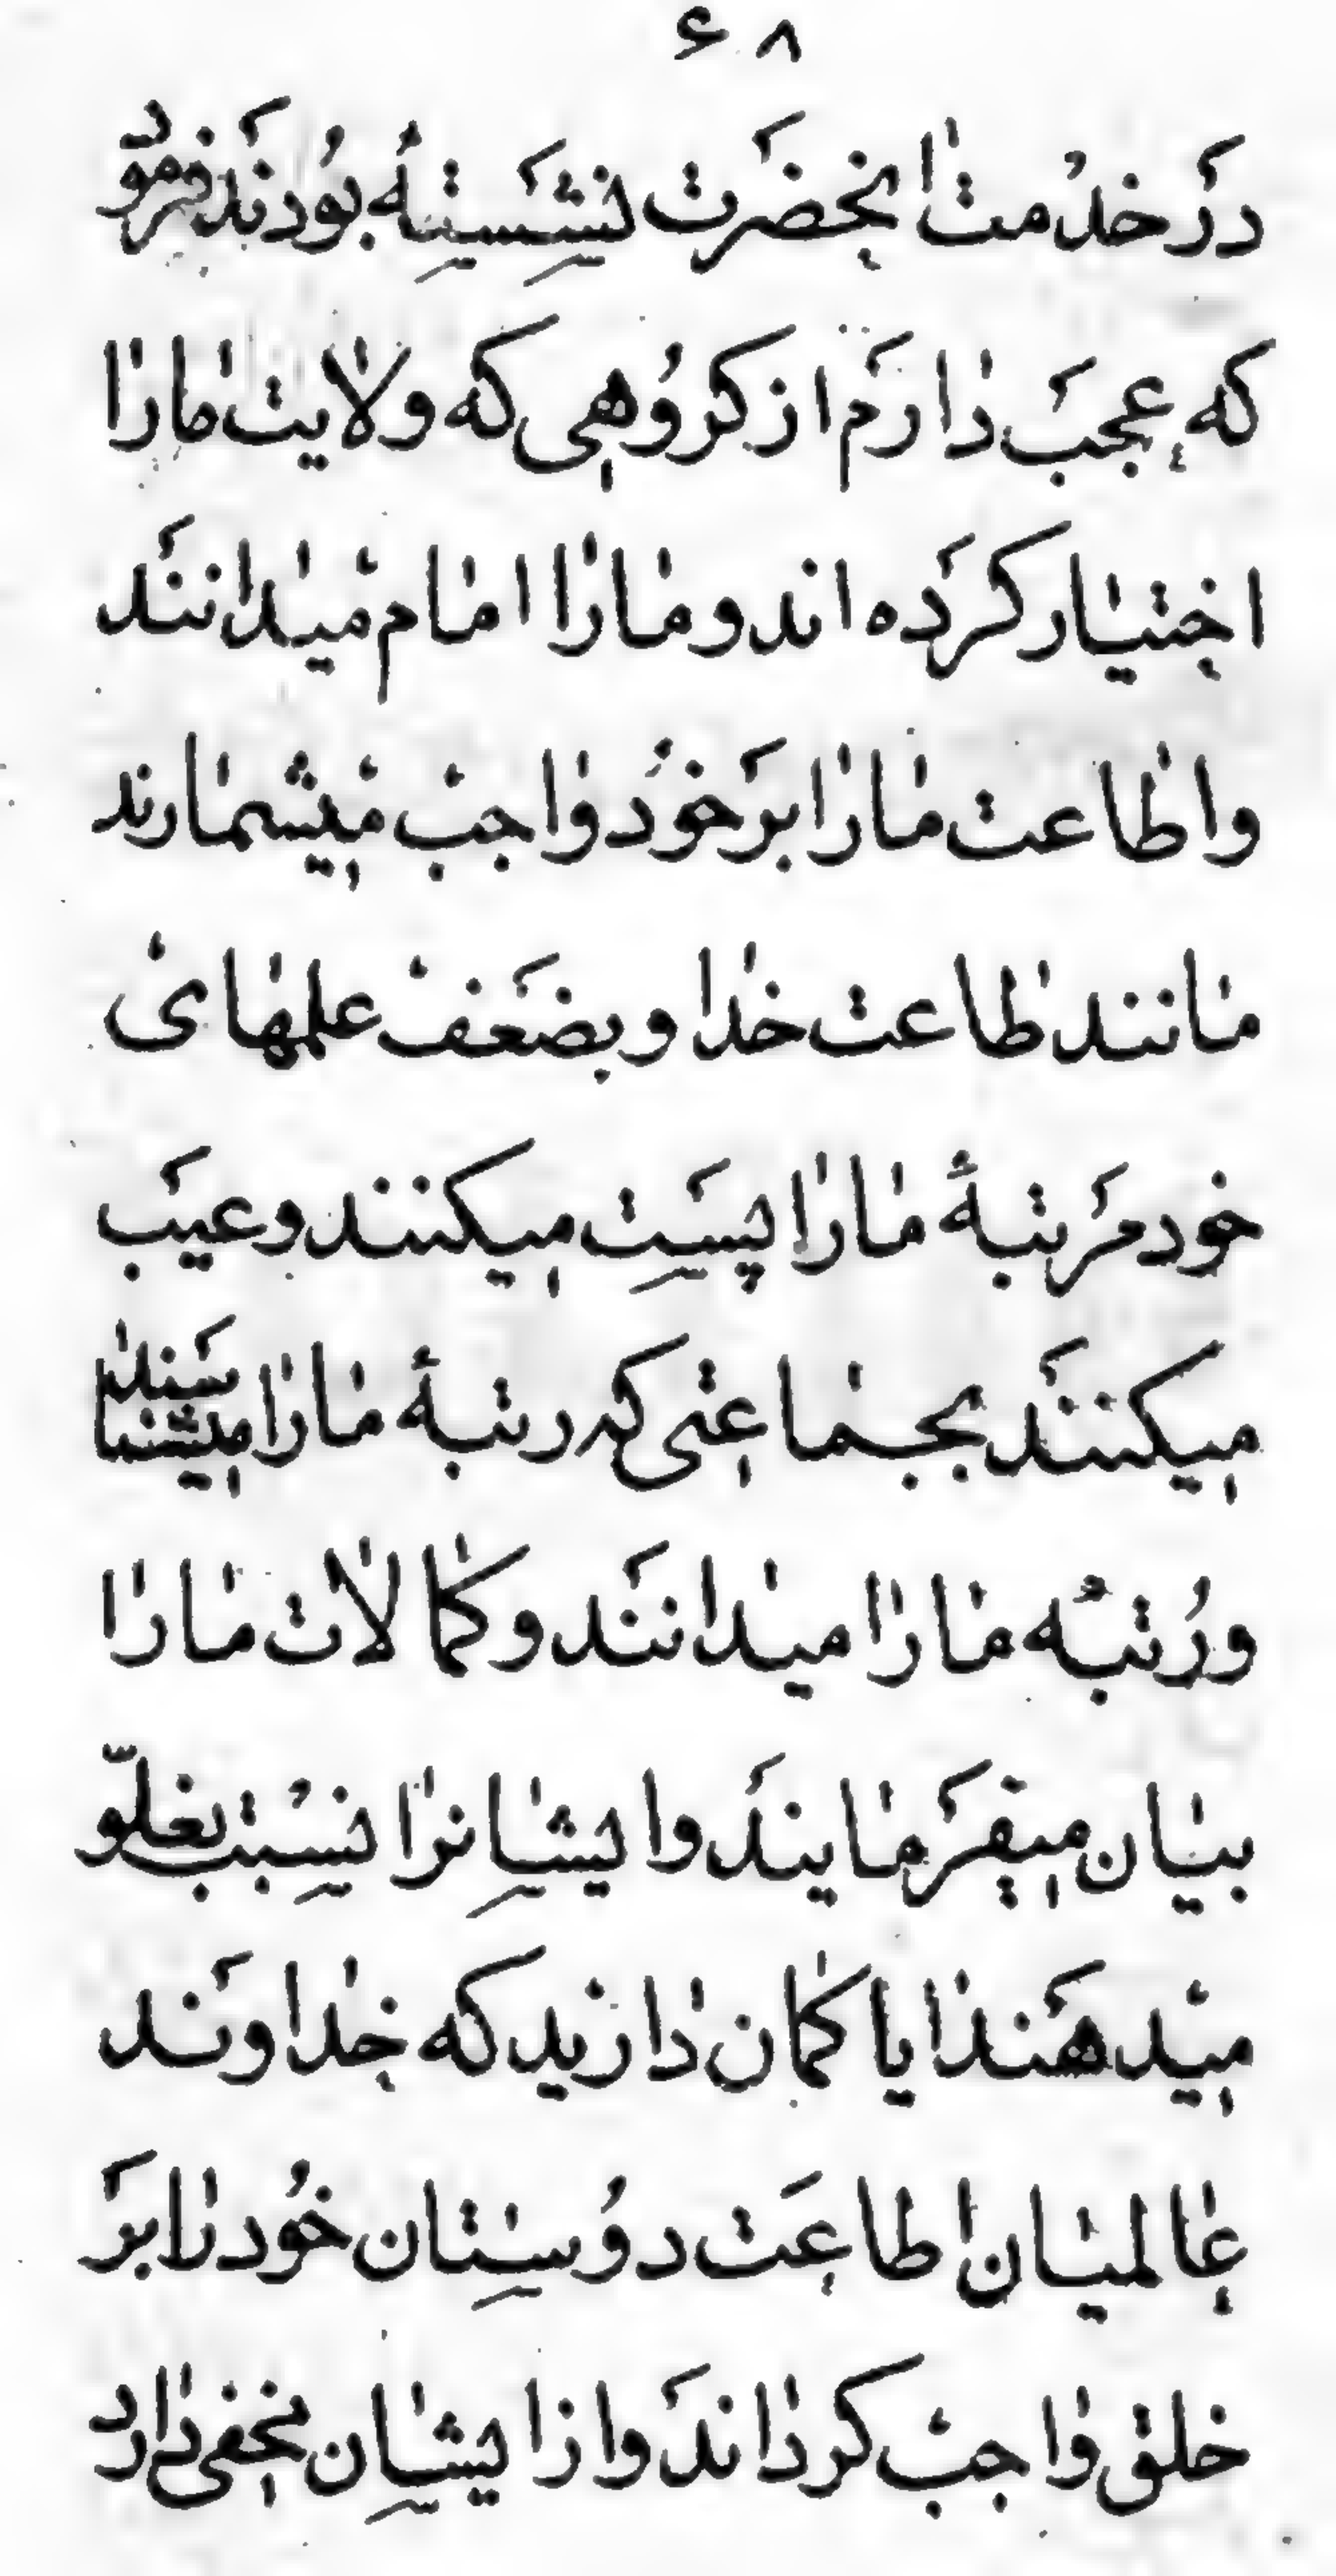 ۶۸
دَر خدْمت انحضَرت نشَستِهٔ بُودنَد فرمود
که عجبَ دارَم از کرُوهی که ولایت مارا
اختیار کرَده اند و مارا امام میْدانند
و اطاعت مارا برَ خوُد واجبْ میْشمارند
مانند طاعت خدا و بضَعفْ علمهای
خود مَرتبهٔ مارا پسَت میکنند و عیَب
میکنندَ بجماعتی که رتبهٔ مارا میشناسند
و رُتبهٔ مارا میدانند و کمالات مارا
بیان میفرَمایندَ و ایشانرا نسْبت بغلوّ
میْدهَند ایا کمان دارْید که خداوند
عالمیان اطاعَت دوُستان خوُد را برَ
خلق واجبْ کرداندَ و از ایشان مخفی دارد